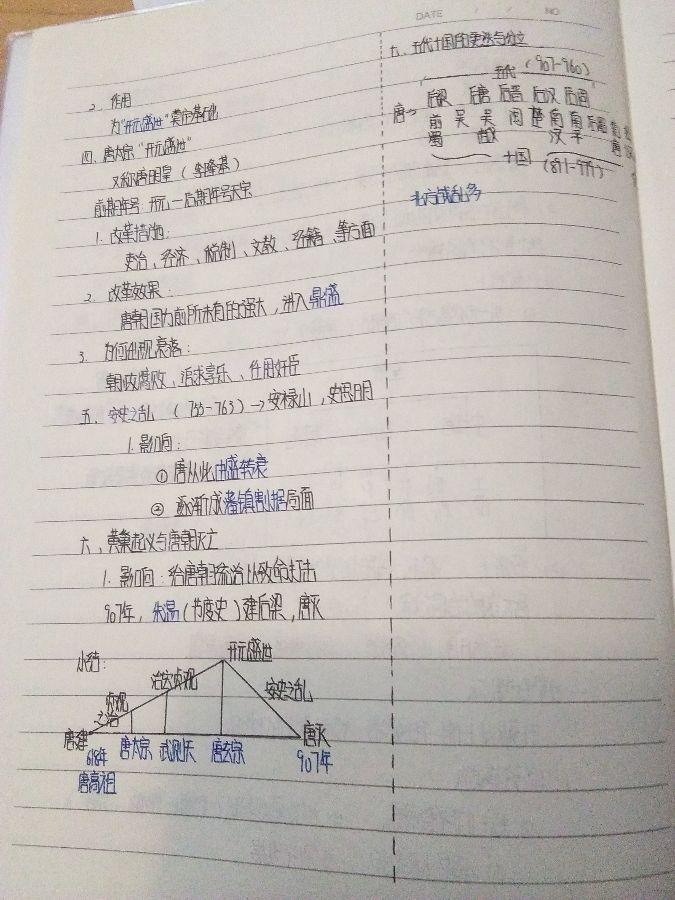 DATE / / NO
2. 作用
为"开元盛世"奠定基础
四、唐太宗"开元盛世"
又称唐明皇（李隆基）
前期年号 开元—后期年号天宝
1. 改革措施：
吏治、经济、税制、文教、经籍、等方面
2. 改革效果：
唐朝国力前所未有的强大，进入鼎盛
3. 为何出现衰落：
朝政腐败、追求享乐、任用奸臣
五、安史之乱 （755-763）→安禄山，史思明
1. 影响：
① 唐从此由盛转衰
② 逐渐形成藩镇割据局面
六、黄巢起义与唐朝灭亡
1. 影响：给唐朝统治以致命打击
907年，朱温（节度史）建后梁，唐灭
小结：
开元盛世
治宏贞观
安史之乱
贞观之治
唐建 唐太宗 武则天 唐玄宗 唐灭
618年 907年
唐高祖
九、五代十国的更迭与分立
五代（907-960）
唐→ 后梁 后唐 后晋 后汉 后周
前蜀 吴 吴越 闽 楚 南汉 南平 后蜀 南唐
十国（891-979）
北方战乱多